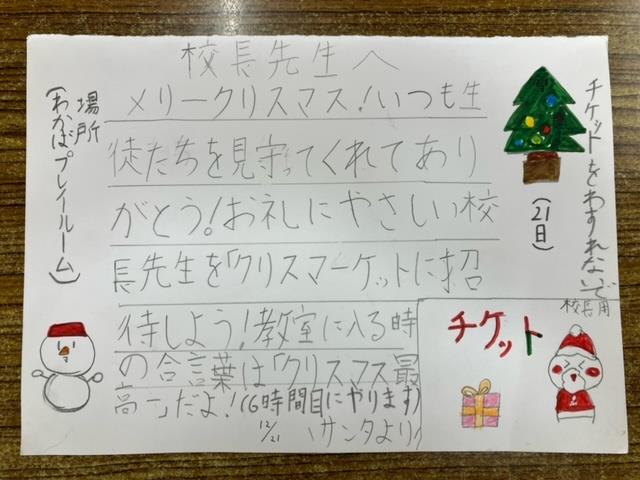 校長先生へ
メリークリスマス!いつも生
徒たちを見守ってくれてあり
がとう!お礼にやさしい校
長先生を「クリスマーケットに招
待しよう!教室に入る時
の合言葉は「クリスマス最
高ー」だよ!(6時間目にやります)
12/21
サンタより
チケットをわすれないで
(21日)
場所
(わかばプレイルーム)
校長用
チケット